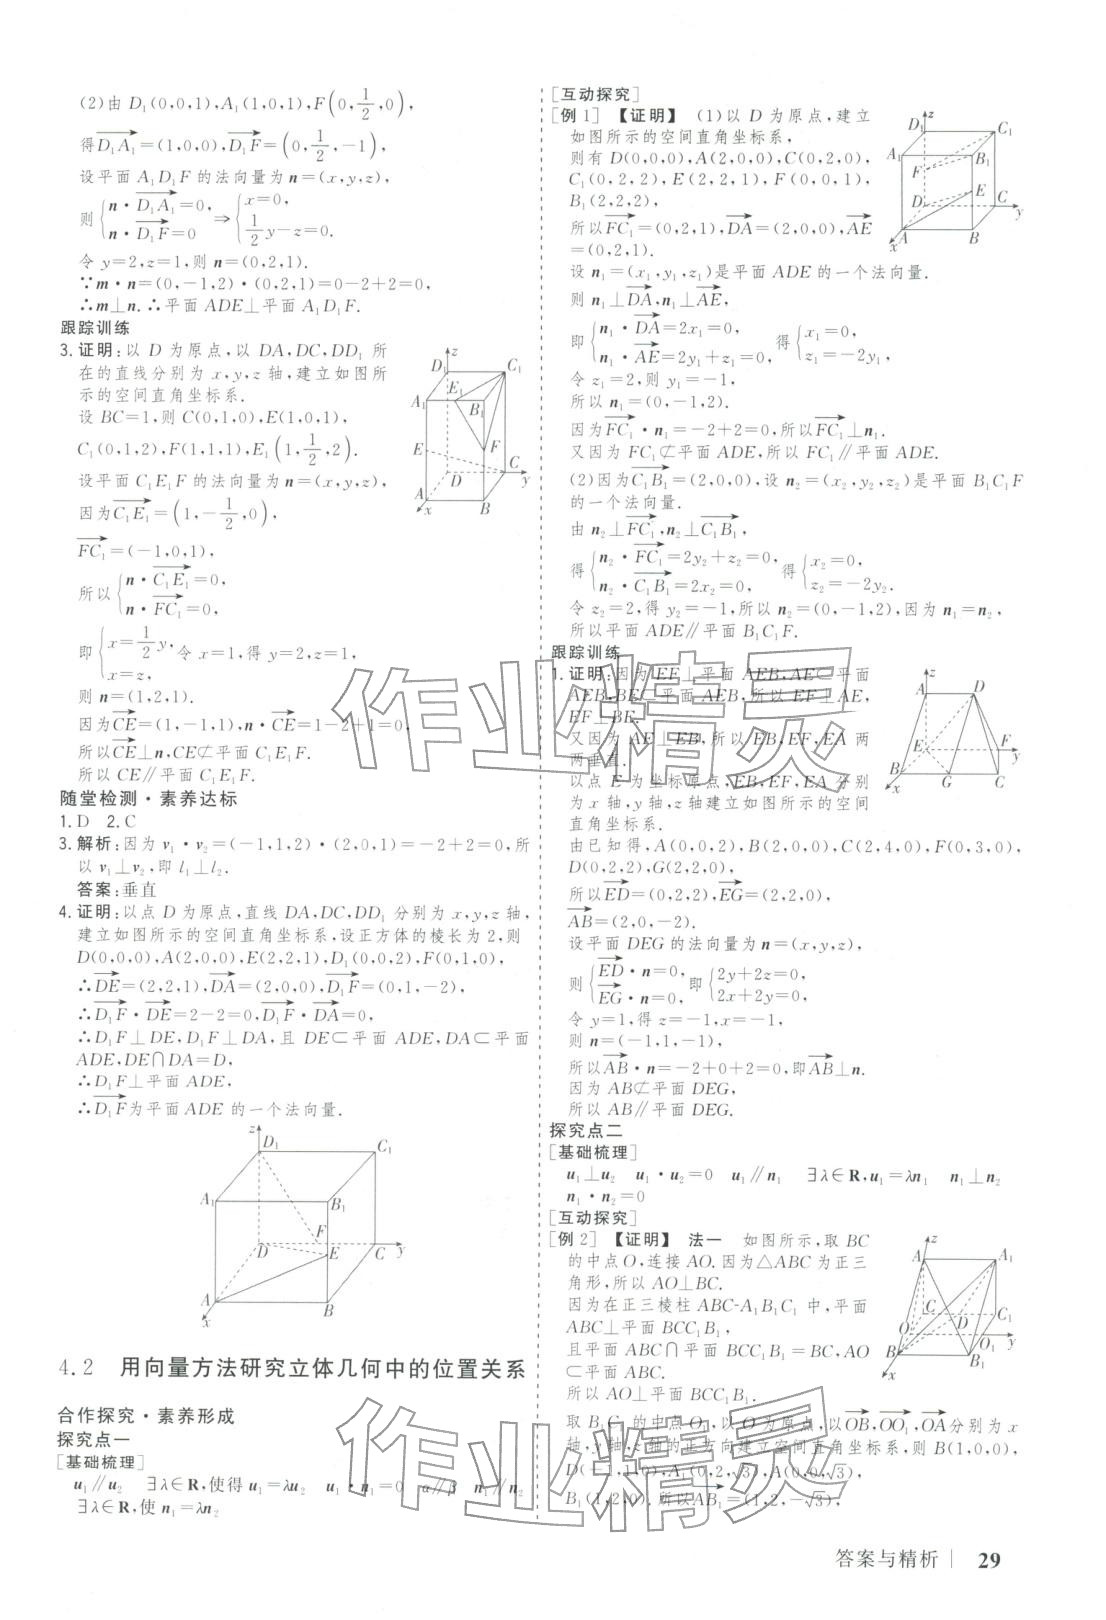 (2)由 D₁(0,0,1),A₁(1,0,1),F(0,1/2,0),
得D₁A₁→=(1,0,0),D₁F→=(0,1/2,-1),
设平面 A₁D₁F 的法向量为 n=(x,y,z),
则{n·D₁A₁→=0, n·D₁F→=0 ⇒ {x=0, 1/2y-z=0.
令 y=2,z=1,则 n=(0,2,1).
∵m·n=(0,-1,2)·(0,2,1)=0-2+2=0,
∴m⊥n.∴平面 ADE⊥平面 A₁D₁F.
跟踪训练
3.证明:以 D 为原点,以 DA,DC,DD₁ 所
在的直线分别为 x,y,z 轴,建立如图所
示的空间直角坐标系.
设 BC=1,则 C(0,1,0),E(1,0,1),
C₁(0,1,2),F(1,1,1),E₁(1,1/2,2).
设平面 C₁E₁F 的法向量为 n=(x,y,z),
因为C₁E₁→=(1,-1/2,0),
FC₁→=(-1,0,1),
所以{n·C₁E₁→=0, n·FC₁→=0,
即{x=1/2y, x=z, 令 x=1,得 y=2,z=1,
则 n=(1,2,1).
因为CE→=(1,-1,1),n·CE→=1-2+1=0,
所以CE→⊥n,CE⊄平面 C₁E₁F.
所以 CE∥平面 C₁E₁F.
随堂检测·素养达标
1.D 2.C
3.解析:因为 v₁·v₂=(-1,1,2)·(2,0,1)=-2+2=0,所
以 v₁⊥v₂,即 l₁⊥l₂.
答案:垂直
4.证明:以点 D 为原点,直线 DA,DC,DD₁ 分别为 x,y,z 轴,
建立如图所示的空间直角坐标系,设正方体的棱长为 2,则
D(0,0,0),A(2,0,0),E(2,2,1),D₁(0,0,2),F(0,1,0),
∴DE→=(2,2,1),DA→=(2,0,0),D₁F→=(0,1,-2),
∴D₁F→·DE→=2-2=0,D₁F→·DA→=0,
∴D₁F⊥DE,D₁F⊥DA,且 DE⊂平面 ADE,DA⊂平面
ADE,DE∩DA=D,
∴D₁F⊥平面 ADE,
∴D₁F→为平面 ADE 的一个法向量.
4.2 用向量方法研究立体几何中的位置关系
合作探究·素养形成
探究点一
[基础梳理]
u₁∥u₂ ∃λ∈R,使得 u₁=λu₂ u₁·n₁=0 α∥β n₁∥n₂
∃λ∈R,使 n₁=λn₂
[互动探究]
[例 1] 【证明】 (1)以 D 为原点,建立
如图所示的空间直角坐标系,
则有 D(0,0,0),A(2,0,0),C(0,2,0),
C₁(0,2,2),E(2,2,1),F(0,0,1),
B₁(2,2,2),
所以FC₁→=(0,2,1),DA→=(2,0,0),AE→
=(0,2,1).
设 n₁=(x₁,y₁,z₁)是平面 ADE 的一个法向量.
则 n₁⊥DA→,n₁⊥AE→,
即{n₁·DA→=2x₁=0, n₁·AE→=2y₁+z₁=0, 得{x₁=0, z₁=-2y₁,
令 z₁=2,则 y₁=-1,
所以 n₁=(0,-1,2).
因为FC₁→·n₁=-2+2=0,所以FC₁→⊥n₁.
又因为 FC₁⊄平面 ADE,所以 FC₁∥平面 ADE.
(2)因为C₁B₁→=(2,0,0),设 n₂=(x₂,y₂,z₂)是平面 B₁C₁F
的一个法向量.
由 n₂⊥FC₁→,n₂⊥C₁B₁→,
得{n₂·FC₁→=2y₂+z₂=0, n₂·C₁B₁→=2x₂=0, 得{x₂=0, z₂=-2y₂.
令 z₂=2,得 y₂=-1,所以 n₂=(0,-1,2),因为 n₁=n₂,
所以平面 ADE∥平面 B₁C₁F.
跟踪训练
1.证明:因为 EF⊥平面 AEB,AE⊂平面
AEB,BE⊂平面 AEB,所以 EF⊥AE,
EF⊥BE.
又因为 AE⊥EB,所以 EB,EF,EA 两
两垂直.
以点 E 为坐标原点,EB,EF,EA 分别
为 x 轴,y 轴,z 轴建立如图所示的空间
直角坐标系.
由已知得,A(0,0,2),B(2,0,0),C(2,4,0),F(0,3,0),
D(0,2,2),G(2,2,0),
所以ED→=(0,2,2),EG→=(2,2,0),
AB→=(2,0,-2).
设平面 DEG 的法向量为 n=(x,y,z),
则{ED→·n=0, EG→·n=0, 即{2y+2z=0, 2x+2y=0,
令 y=1,得 z=-1,x=-1,
则 n=(-1,1,-1),
所以AB→·n=-2+0+2=0,即AB→⊥n.
因为 AB⊄平面 DEG,
所以 AB∥平面 DEG.
探究点二
[基础梳理]
u₁⊥u₂ u₁·u₂=0 u₁∥n₁ ∃λ∈R,u₁=λn₁ n₁⊥n₂
n₁·n₂=0
[互动探究]
[例 2] 【证明】 法一 如图所示,取 BC
的中点 O,连接 AO.因为△ABC 为正三
角形,所以 AO⊥BC.
因为在正三棱柱 ABC-A₁B₁C₁ 中,平面
ABC⊥平面 BCC₁B₁,
且平面 ABC∩平面 BCC₁B₁=BC,AO
⊂平面 ABC.
所以 AO⊥平面 BCC₁B₁.
取 B₁C₁ 的中点 O₁,以 O 为原点,以OB→,OO₁→,OA→分别为 x
轴,y轴,z轴的正方向建立空间直角坐标系,则 B(1,0,0),
D(-1,1,0),A₁(0,2,√3),A(0,0,√3),
B₁(1,2,0).所以AB₁→=(1,2,-√3),
答案与精析 | 29
作业精灵
作业精灵